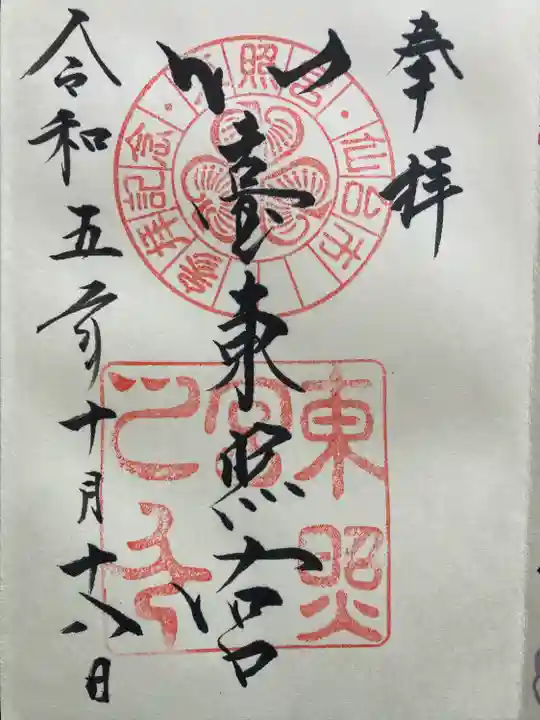 奉拝
仙臺東照宮
令和五年十月十八日
東照宮・仙台市
参拝記念・
東照宮之印